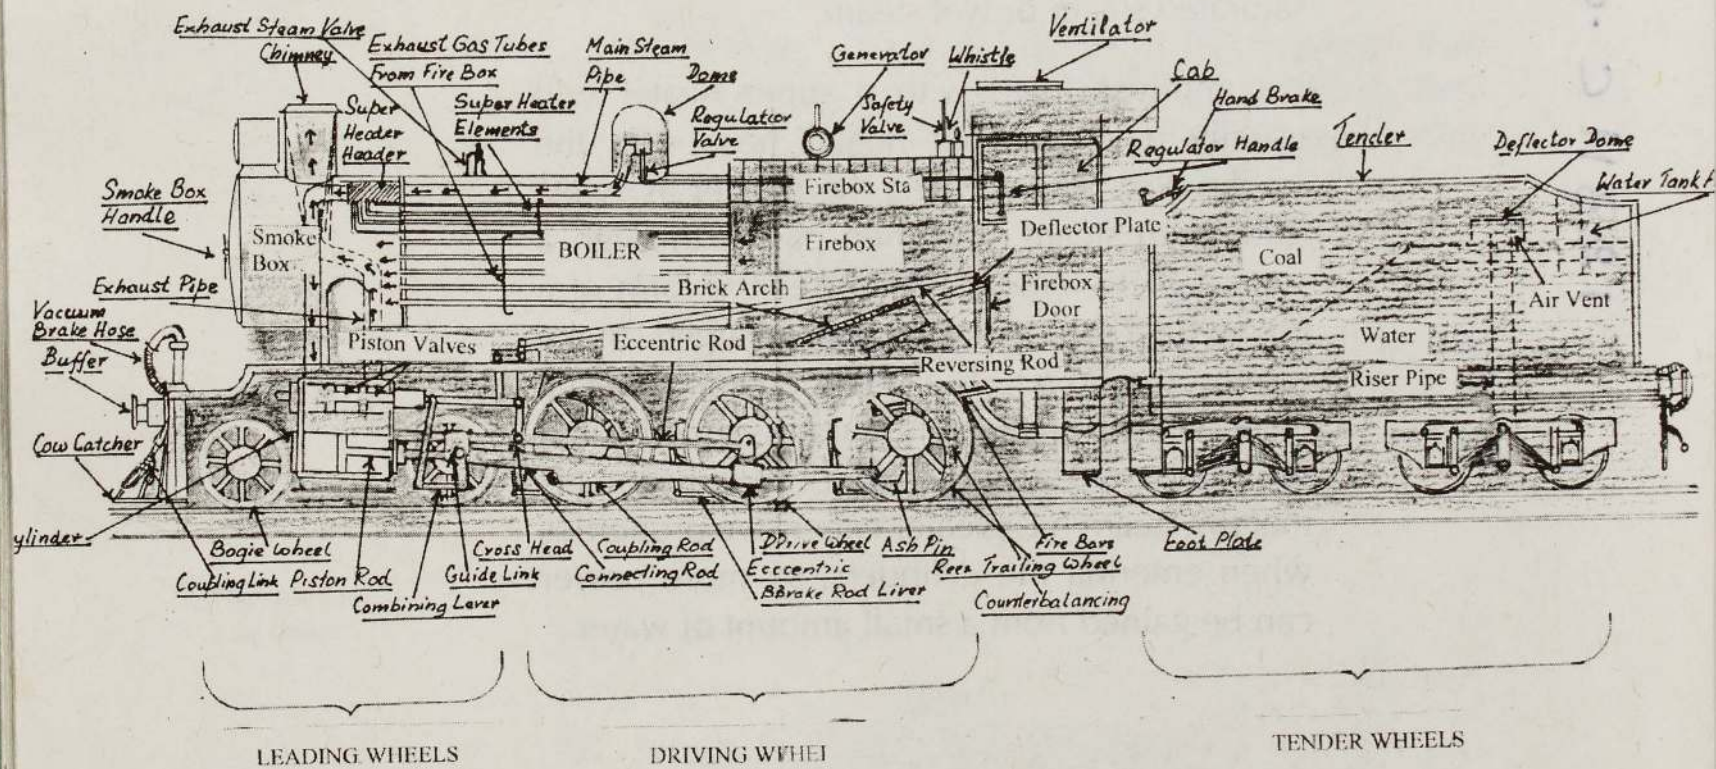 Exhaust Steam Valve
Chimney
Exhaust Gas Tubes
From Fire Box
Main Steam
Pipe
Dome
Generator
Whistle
Ventilator
Cab
Super
Header
Header
Super Heater
Elements
Regulatior
Valve
Safety
Valve
Hand Brake
Regulator Handle
Tender
Deflector Dome
Water Tank f
Smoke Box
Handle
Smoke
Box
BOILER
Firebox Sta
Firebox
Deflector Plate
Coal
Exhaust Pipe
Brick Arcth
Firebox
Door
Air Vent
Vacuum
Brake Hose
Buffer
Piston Valves
Eccentric Rod
Reversing Rod
Water
Riser Pipe
Cow Catcher
ylinder
Bogie Wheel
Coupling Link
Piston Rod
Combining Laver
Cross Head
Guide Link
Coupling Rod
Connecting Rod
DDrive Wheel
Ecccentric
BBrake Rod Livar
Ash Pin
Fire Bars
Reea Trailing Wheel
Counterbalancing
Foot Plate
can be gained from a small amount of ways
LEADING WHEELS
DRIVING WHEI
TENDER WHEELS